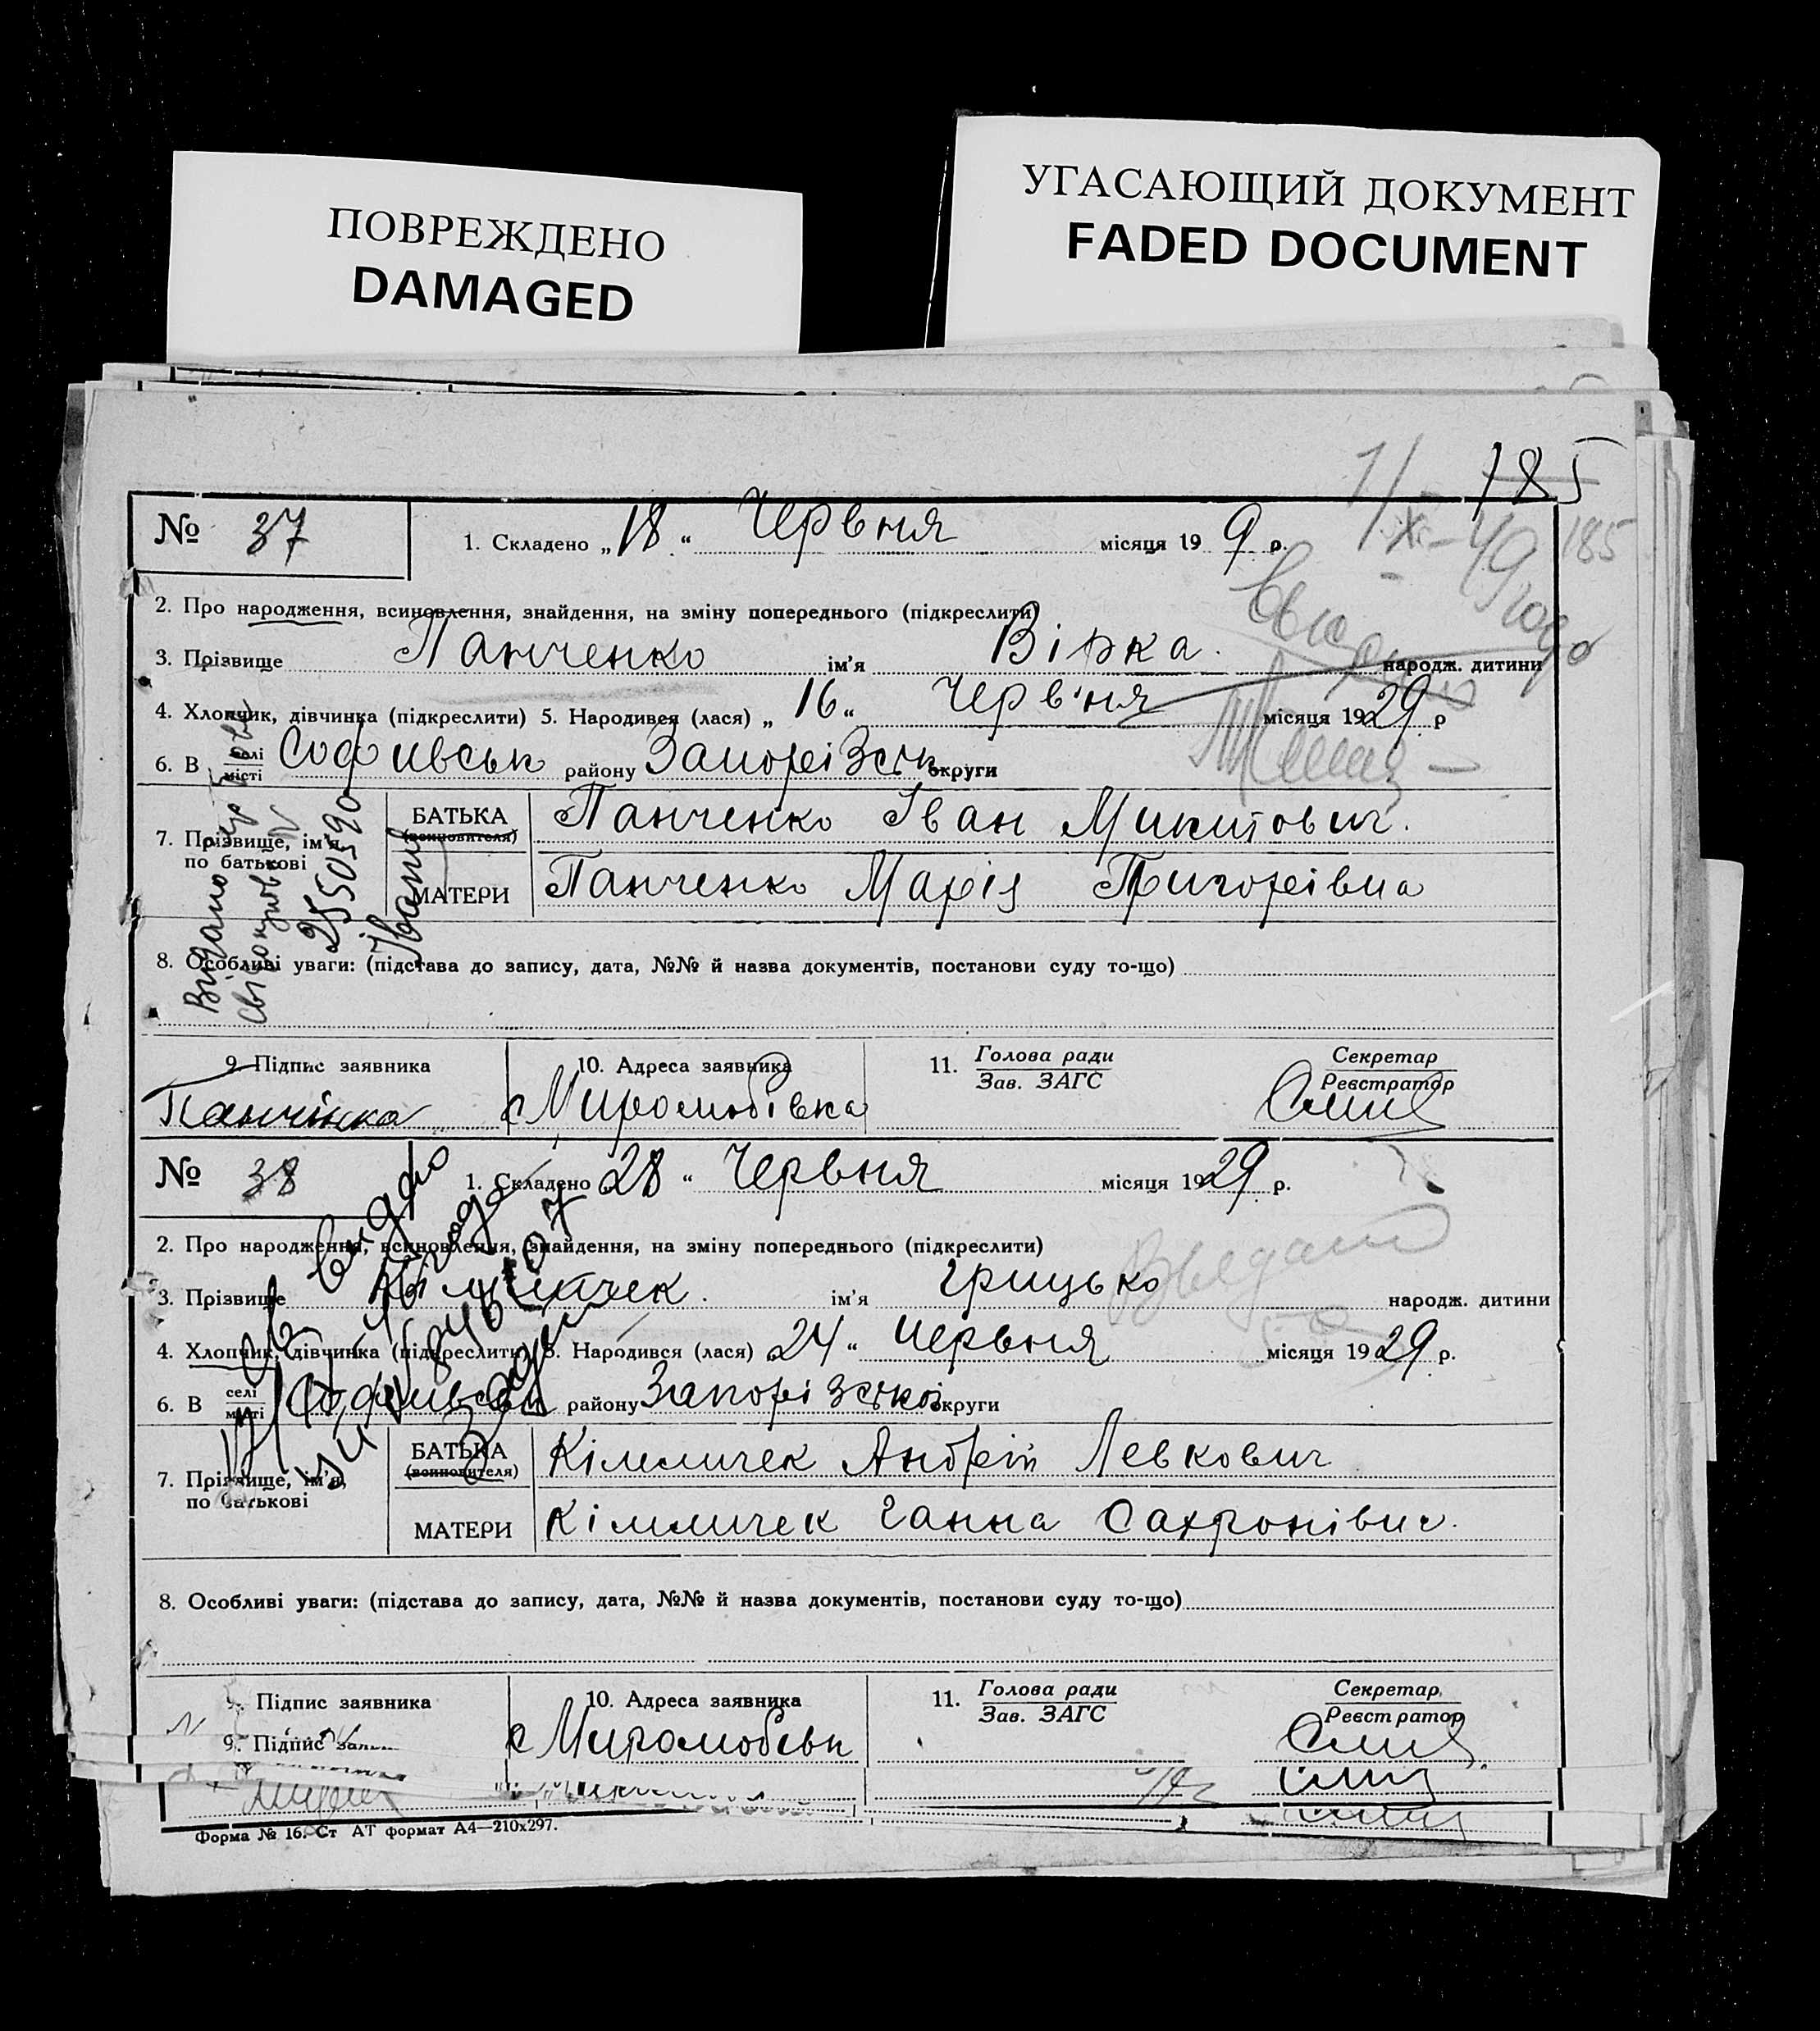 ПОВРЕЖДЕНО
DAMAGED
УГАСАЮЩИЙ ДОКУМЕНТ
FADED DOCUMENT
185
1/X-49 года 185
№ 37
1. Складено „18“ Червня місяця 19 9 р.
2. Про народження, всиновлення, знайдення, на зміну попереднього (підкреслити)
3. Прізвище Панченко ім'я Вірка. народж. дитини
4. Хлопчик, дівчинка (підкреслити) 5. Народився (лася) „16“ Червня місяця 1929 р
6. В селі місті Софиївськ району Запорізськ округи
7. Прізвище, ім'я, по батькові
БАТЬКА (всиновителя) Панченко Іван Микитович.
МАТЕРИ Панченко Марія Григорівна
Видано
2550590
8. Особливі уваги: (підстава до запису, дата, №№ й назва документів, постанови суду то-що)
9. Підпис заявника
10. Адреса заявника
11. Голова ради
Зав. ЗАГС
Секретар
Реєстратор
Панчінка с Миролюбівка
№ 38
1. Складено 28“ Червня місяця 1929 р.
2. Про народження, всиновлення, знайдення, на зміну попереднього (підкреслити)
3. Прізвище Кімличек. ім'я Грицько народж. дитини
4. Хлопчик, дівчинка (підкреслити) 5. Народився (лася) „24“ Червня місяця 1929 р.
6. В селі місті Софиївськ району Запорізської округи
7. Прізвище, ім'я, по батькові
БАТЬКА (всиновителя) Кімличек Андрій Левкович
МАТЕРИ Кімличек Ганна Сахронівна.
8. Особливі уваги: (підстава до запису, дата, №№ й назва документів, постанови суду то-що)
9. Підпис заявника
10. Адреса заявника
11. Голова ради
Зав. ЗАГС
Секретар
Реєстратор
с Миролюбівк
9. Підпис
Форма № 16. Ст АТ формат А4—210х297.